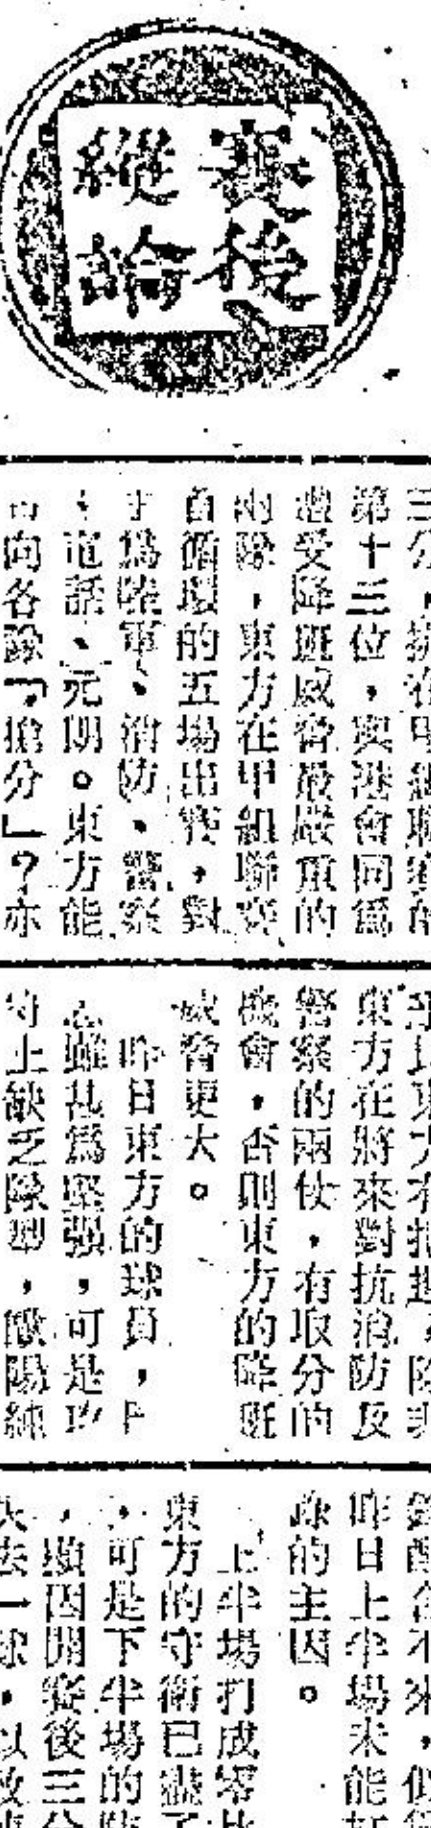 賽後
縱論
三分，
第十三位，與港會同爲
遭受降班威脅最嚴重的
兩隊，東方在甲組聯賽
首循環的五場出賽，對
手爲陸軍、消防、警察
、電話、元朗。東方能
向各隊「搶分」？亦
東方在將來對抗消防及
警察的兩仗，有取分的
機會，否則東方的降班
威脅更大。
昨日東方的球員，
雖甚爲堅强，可是攻
守上缺乏陣型，歐陽練
昨日上半場未能
的主因。
上半場打成零比
東方的守衛已盡了
，可是下半場的
，顯因開賽後三分
失去一球，以致